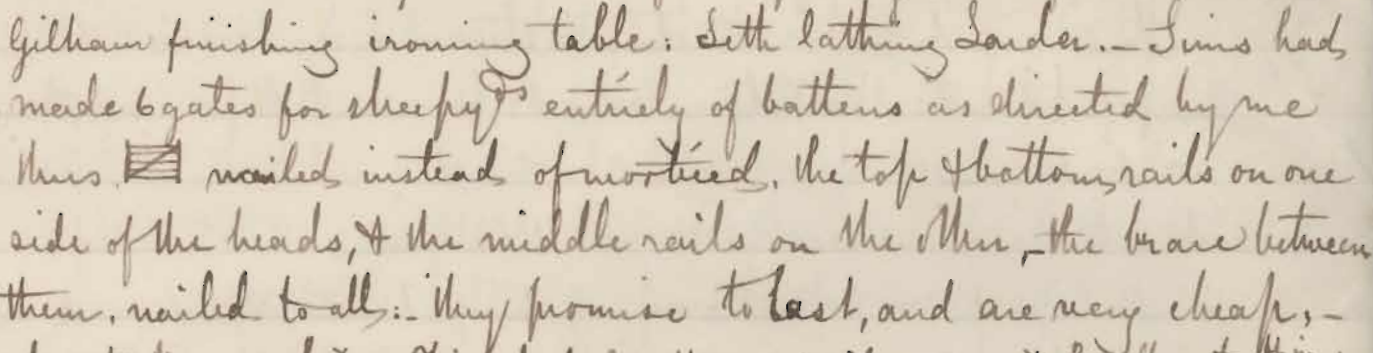 Gilham finishing ironing table: Seth lathing Larder. – Sims had
made 6 gates for sheepyds entirely of battens as directed by me
thus nailed instead of morticed. the top & bottom rails on one
side of the heads, & the middle rails on the other, – the brace between
them. nailed to all: – they promise to last, and are very cheap, –